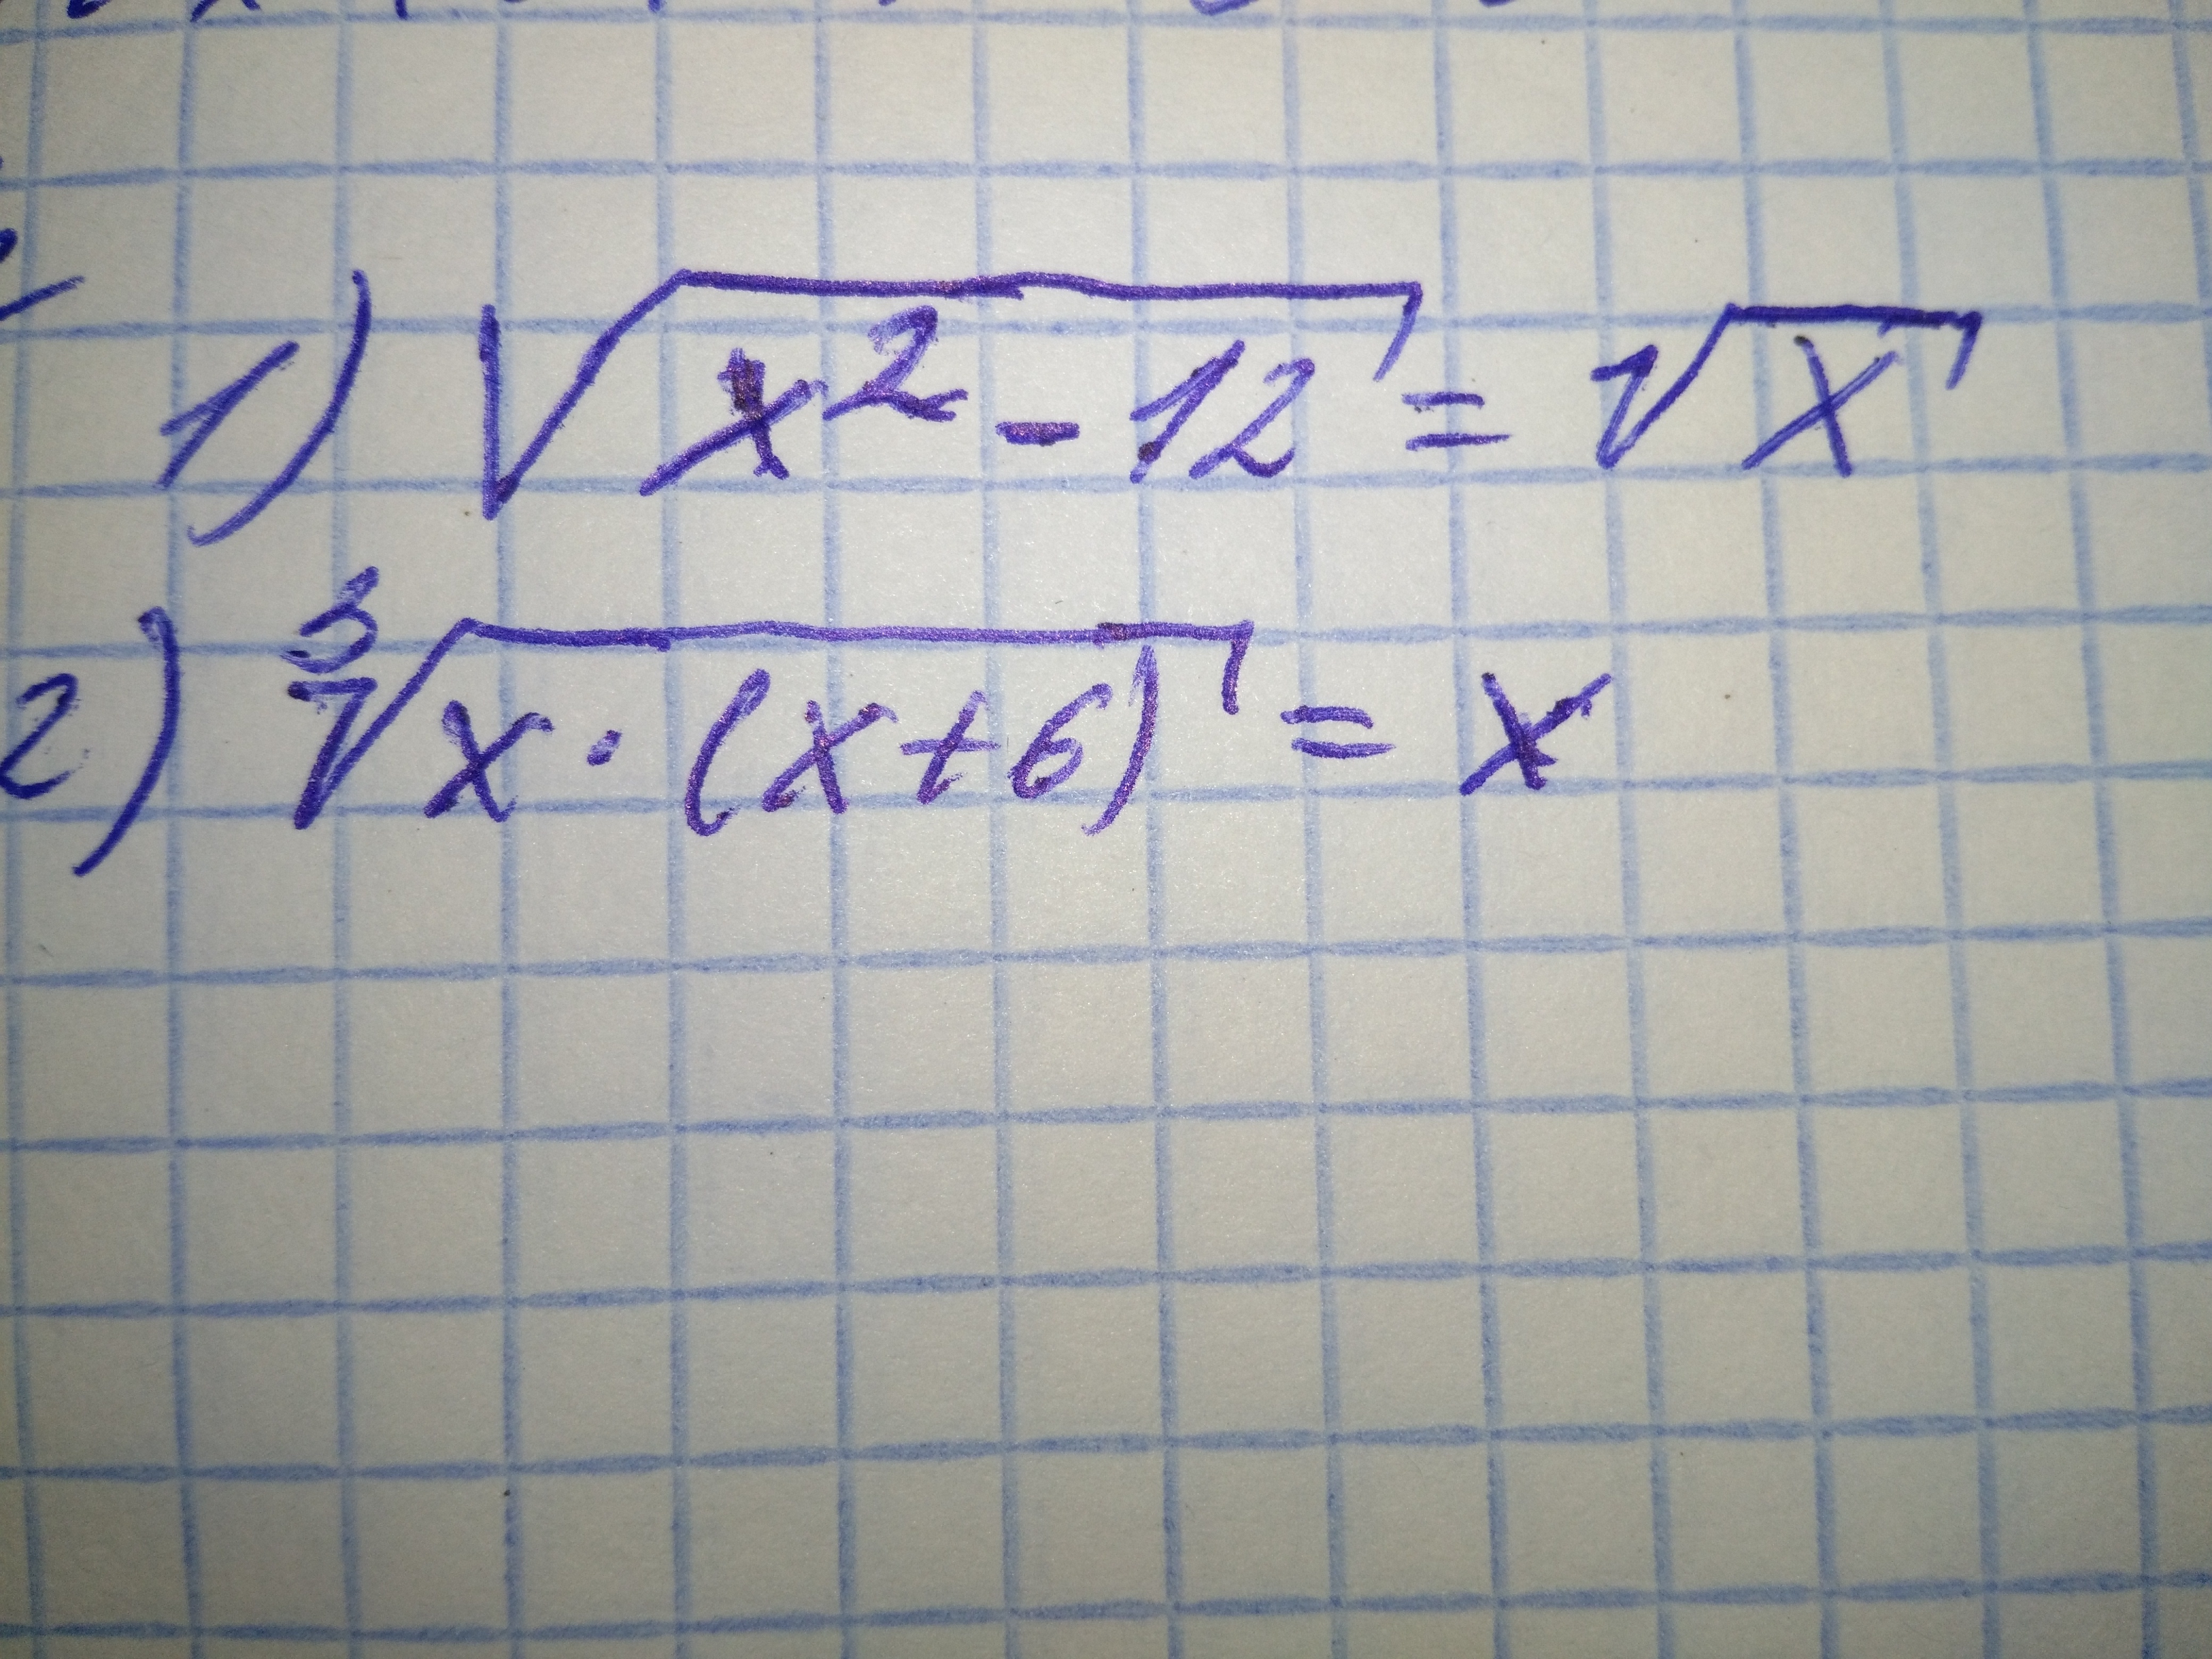 1) √(x² - 12) = √x
2) ³√(x · (x+6)) = x